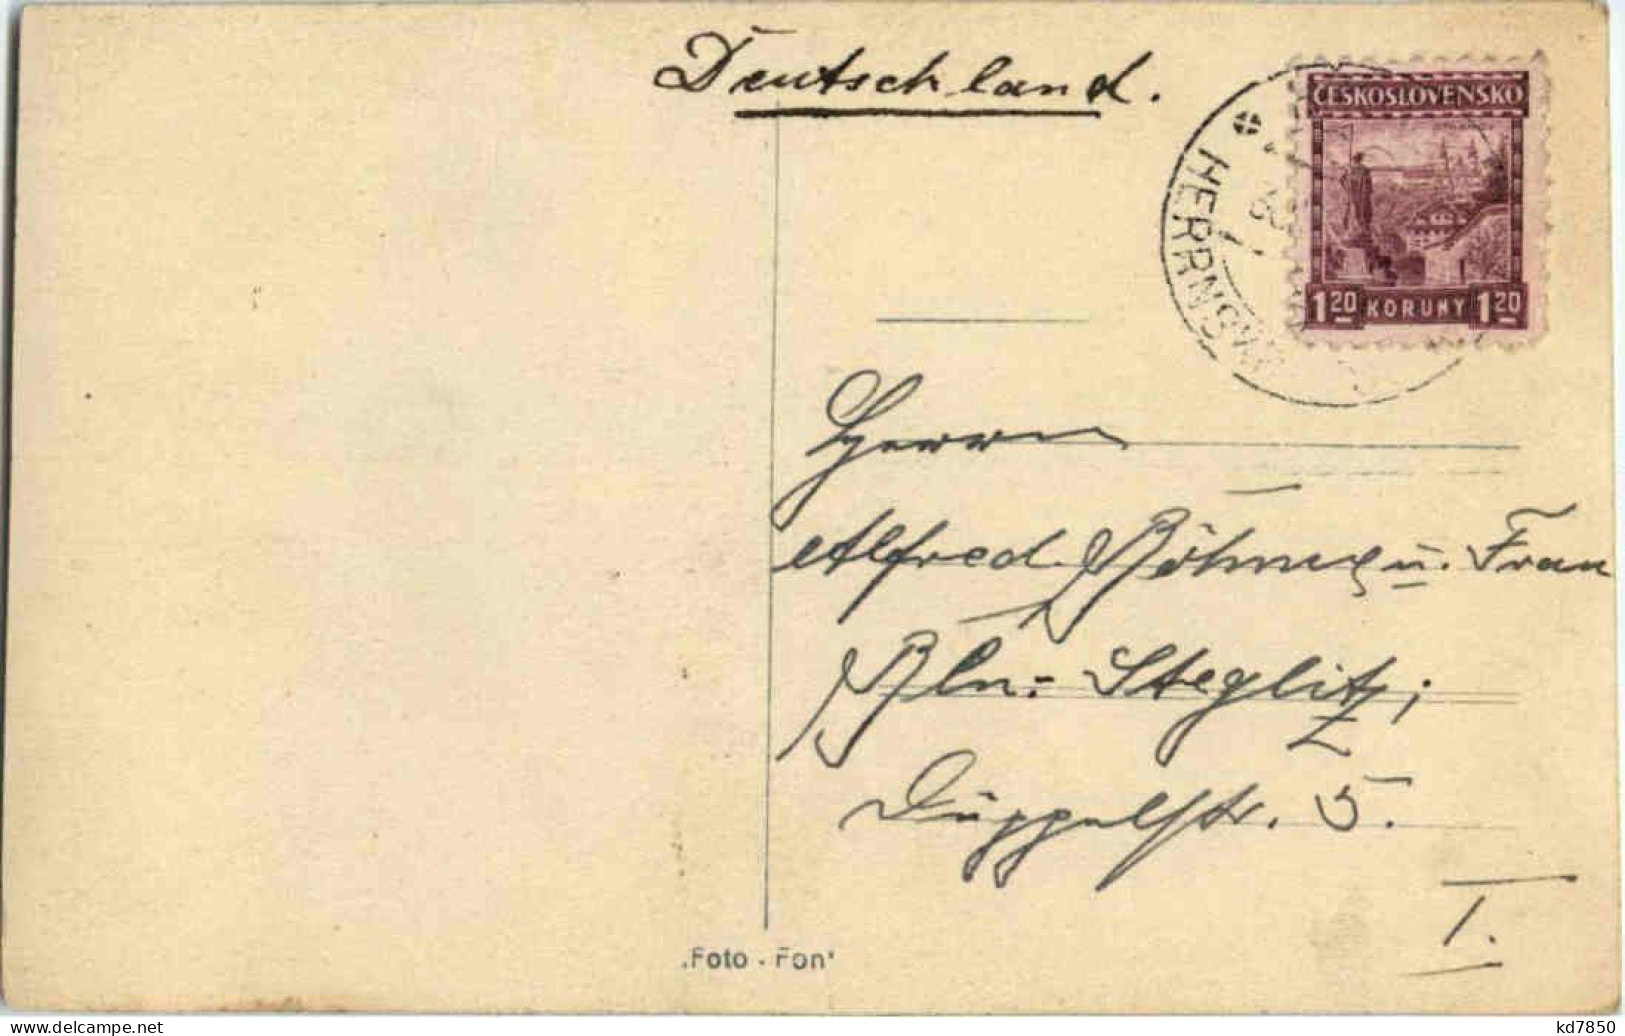 Deutschland.
ČESKOSLOVENSKO
1 20 KORUNY 1 20
HERRNSK
Herrn
Alfred Böhme u. Frau
Bln.- Steglitz;
Düppelstr. 5.
I.
„Foto - Fon“
kd7850